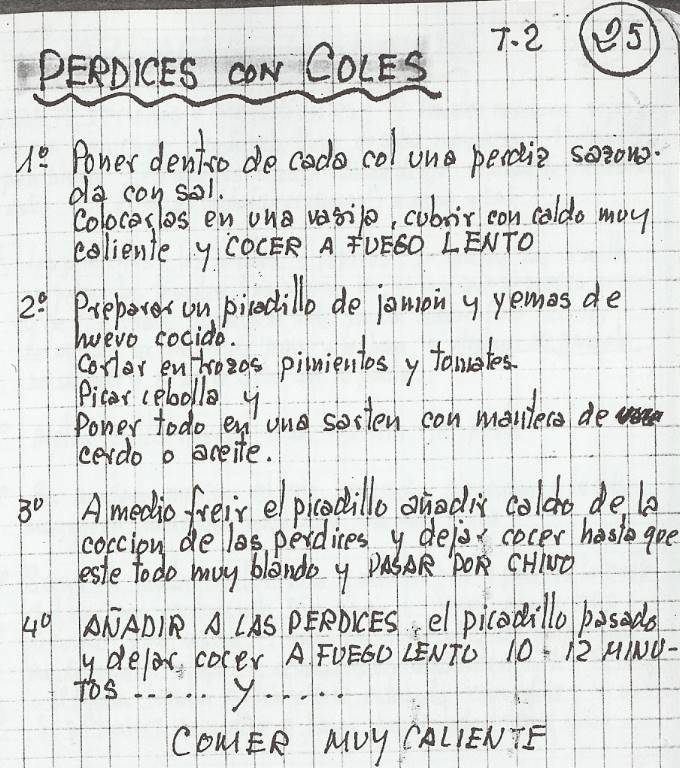 T.2 25
PERDICES CON COLES
1º Poner dentro de cada col una perdiz sazona-
da con sal.
Colocarlas en una vasija, cubrir con caldo muy
caliente y COCER A FUEGO LENTO
2º Preparar un picadillo de jamón y yemas de
huevo cocido.
Cortar en trozos pimientos y tomates.
Picar cebolla y
Poner todo en una sarten con manteca de
cerdo o aceite.
3º A medio freir el picadillo añadir caldo de la
coccion de las perdices y dejar cocer hasta que
este todo muy blando y PASAR POR CHINO
4º AÑADIR A LAS PERDICES el picadillo pasado
y dejar cocer A FUEGO LENTO 10-12 MINU-
TOS ..... y .....
COMER MUY CALIENTE